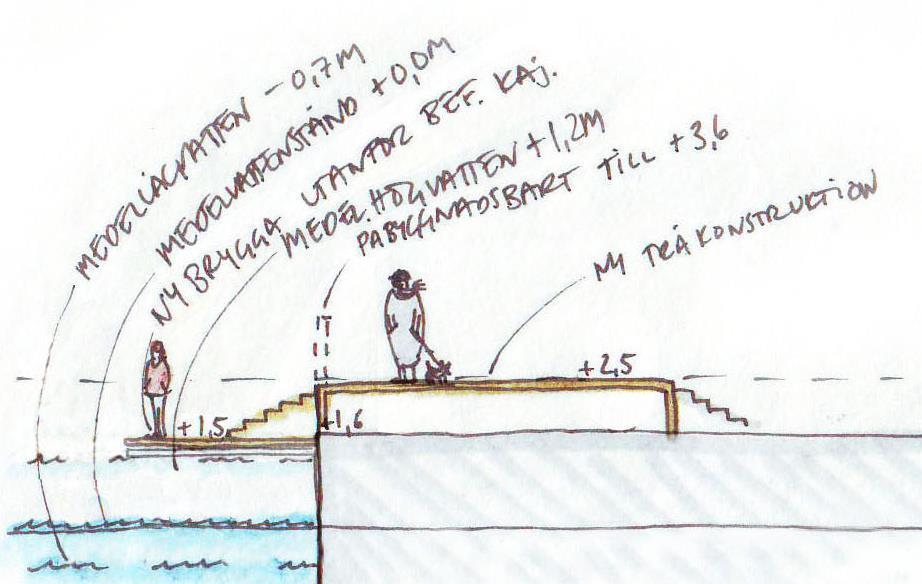 MEDELLÅGVATTEN -0,7M
MEDELVATTENSTÅND +0,0M
NY BRYGGA UTANFÖR BEF. KAJ.
MEDEL.HÖGVATTEN +1,2M
PÅBYGGNADSBART TILL +3,6
NY TRÄKONSTRUKTION
+2,5
+1,5
+1,6